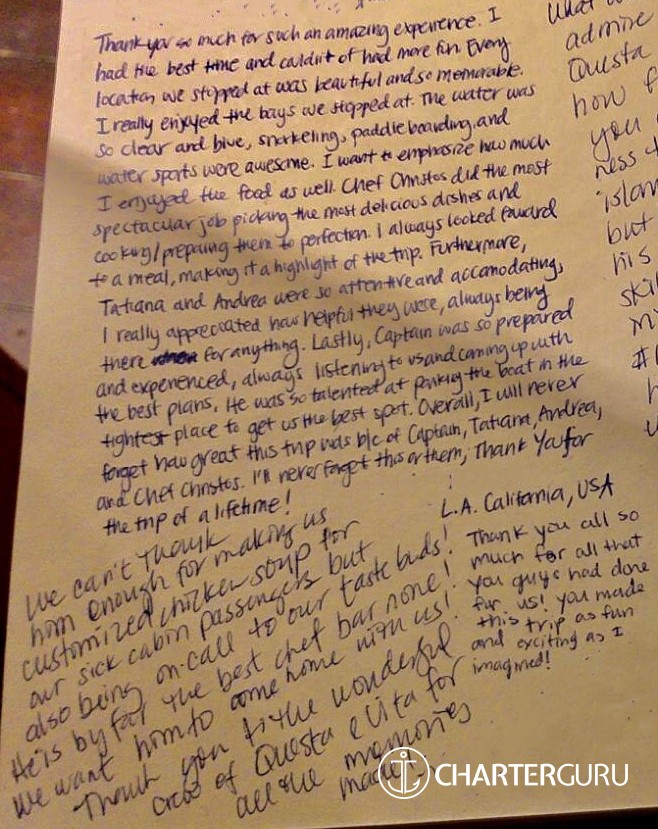 Thank you so much for such an amazing experience. I
had the best time and couldn't of had more fun. Every
location we stopped at was beautiful and so memorable.
I really enjoyed the bays we stopped at. The water was
so clear and blue, snorkeling, paddleboarding, and
water sports were awesome. I want to emphasize how much
I enjoyed the food as well. Chef Christos did the most
spectacular job picking the most delicious dishes and
cooking/preparing them to perfection. I always looked forward
to a meal, making it a highlight of the trip. Furthermore,
Tatiana and Andrea were so attentive and accomodating,
I really appreciated how helpful they were, always being
there for anything. Lastly, Captain was so prepared
and experienced, always listening to us and coming up with
the best plans. He was so talented at parking the boat in the
tightest place to get us the best spot. Overall, I will never
forget how great this trip was b/c of Captain, Tatiana, Andrea,
and Chef Christos. I'll never forget this or them, Thank You for
the trip of a lifetime!
L.A. California, USA
We can't thank
him enough for making us
customized chicken soup for
our sick cabin passengers but
also being on-call to our taste buds!
He is by far the best chef bar none!
We want him to come home with us!
Thank you to the wonderful
crew of Questa e Vita for
all the memories
made
Thank you all so
much for all that
you guys had done
for us! You made
this trip as fun
and exciting as I
imagined!
What
admire
Questa
how f
you
ness
islan
but
his
skil
m
CHARTERGURU